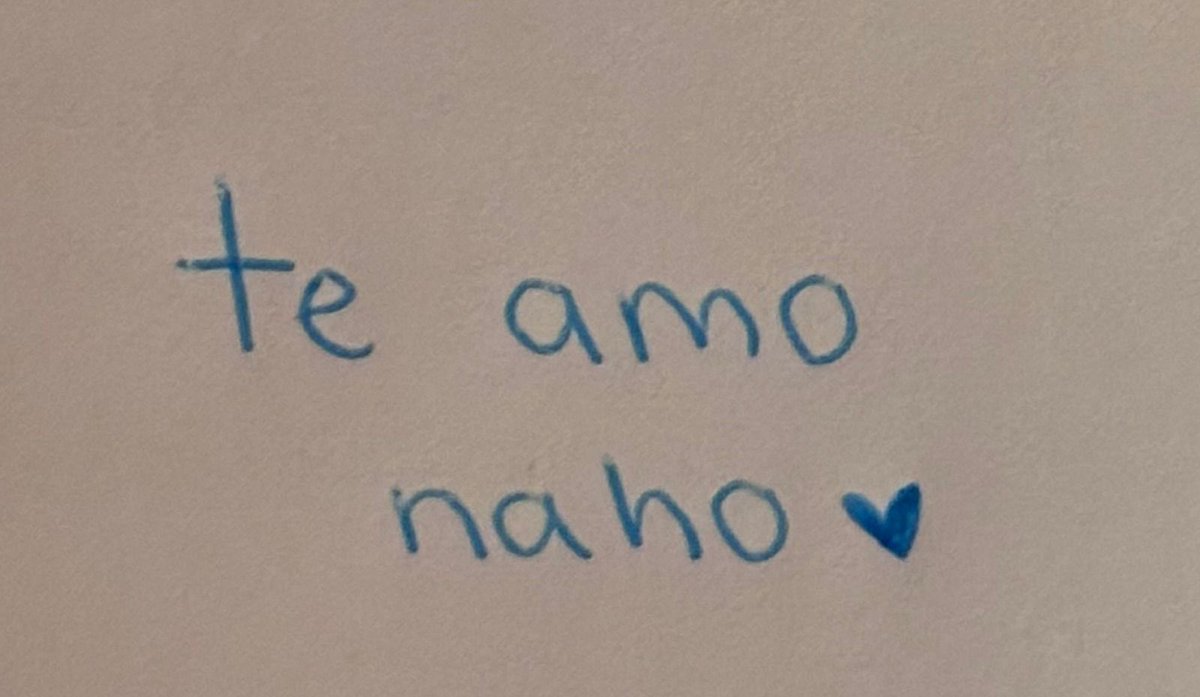 te amo
naho ♥